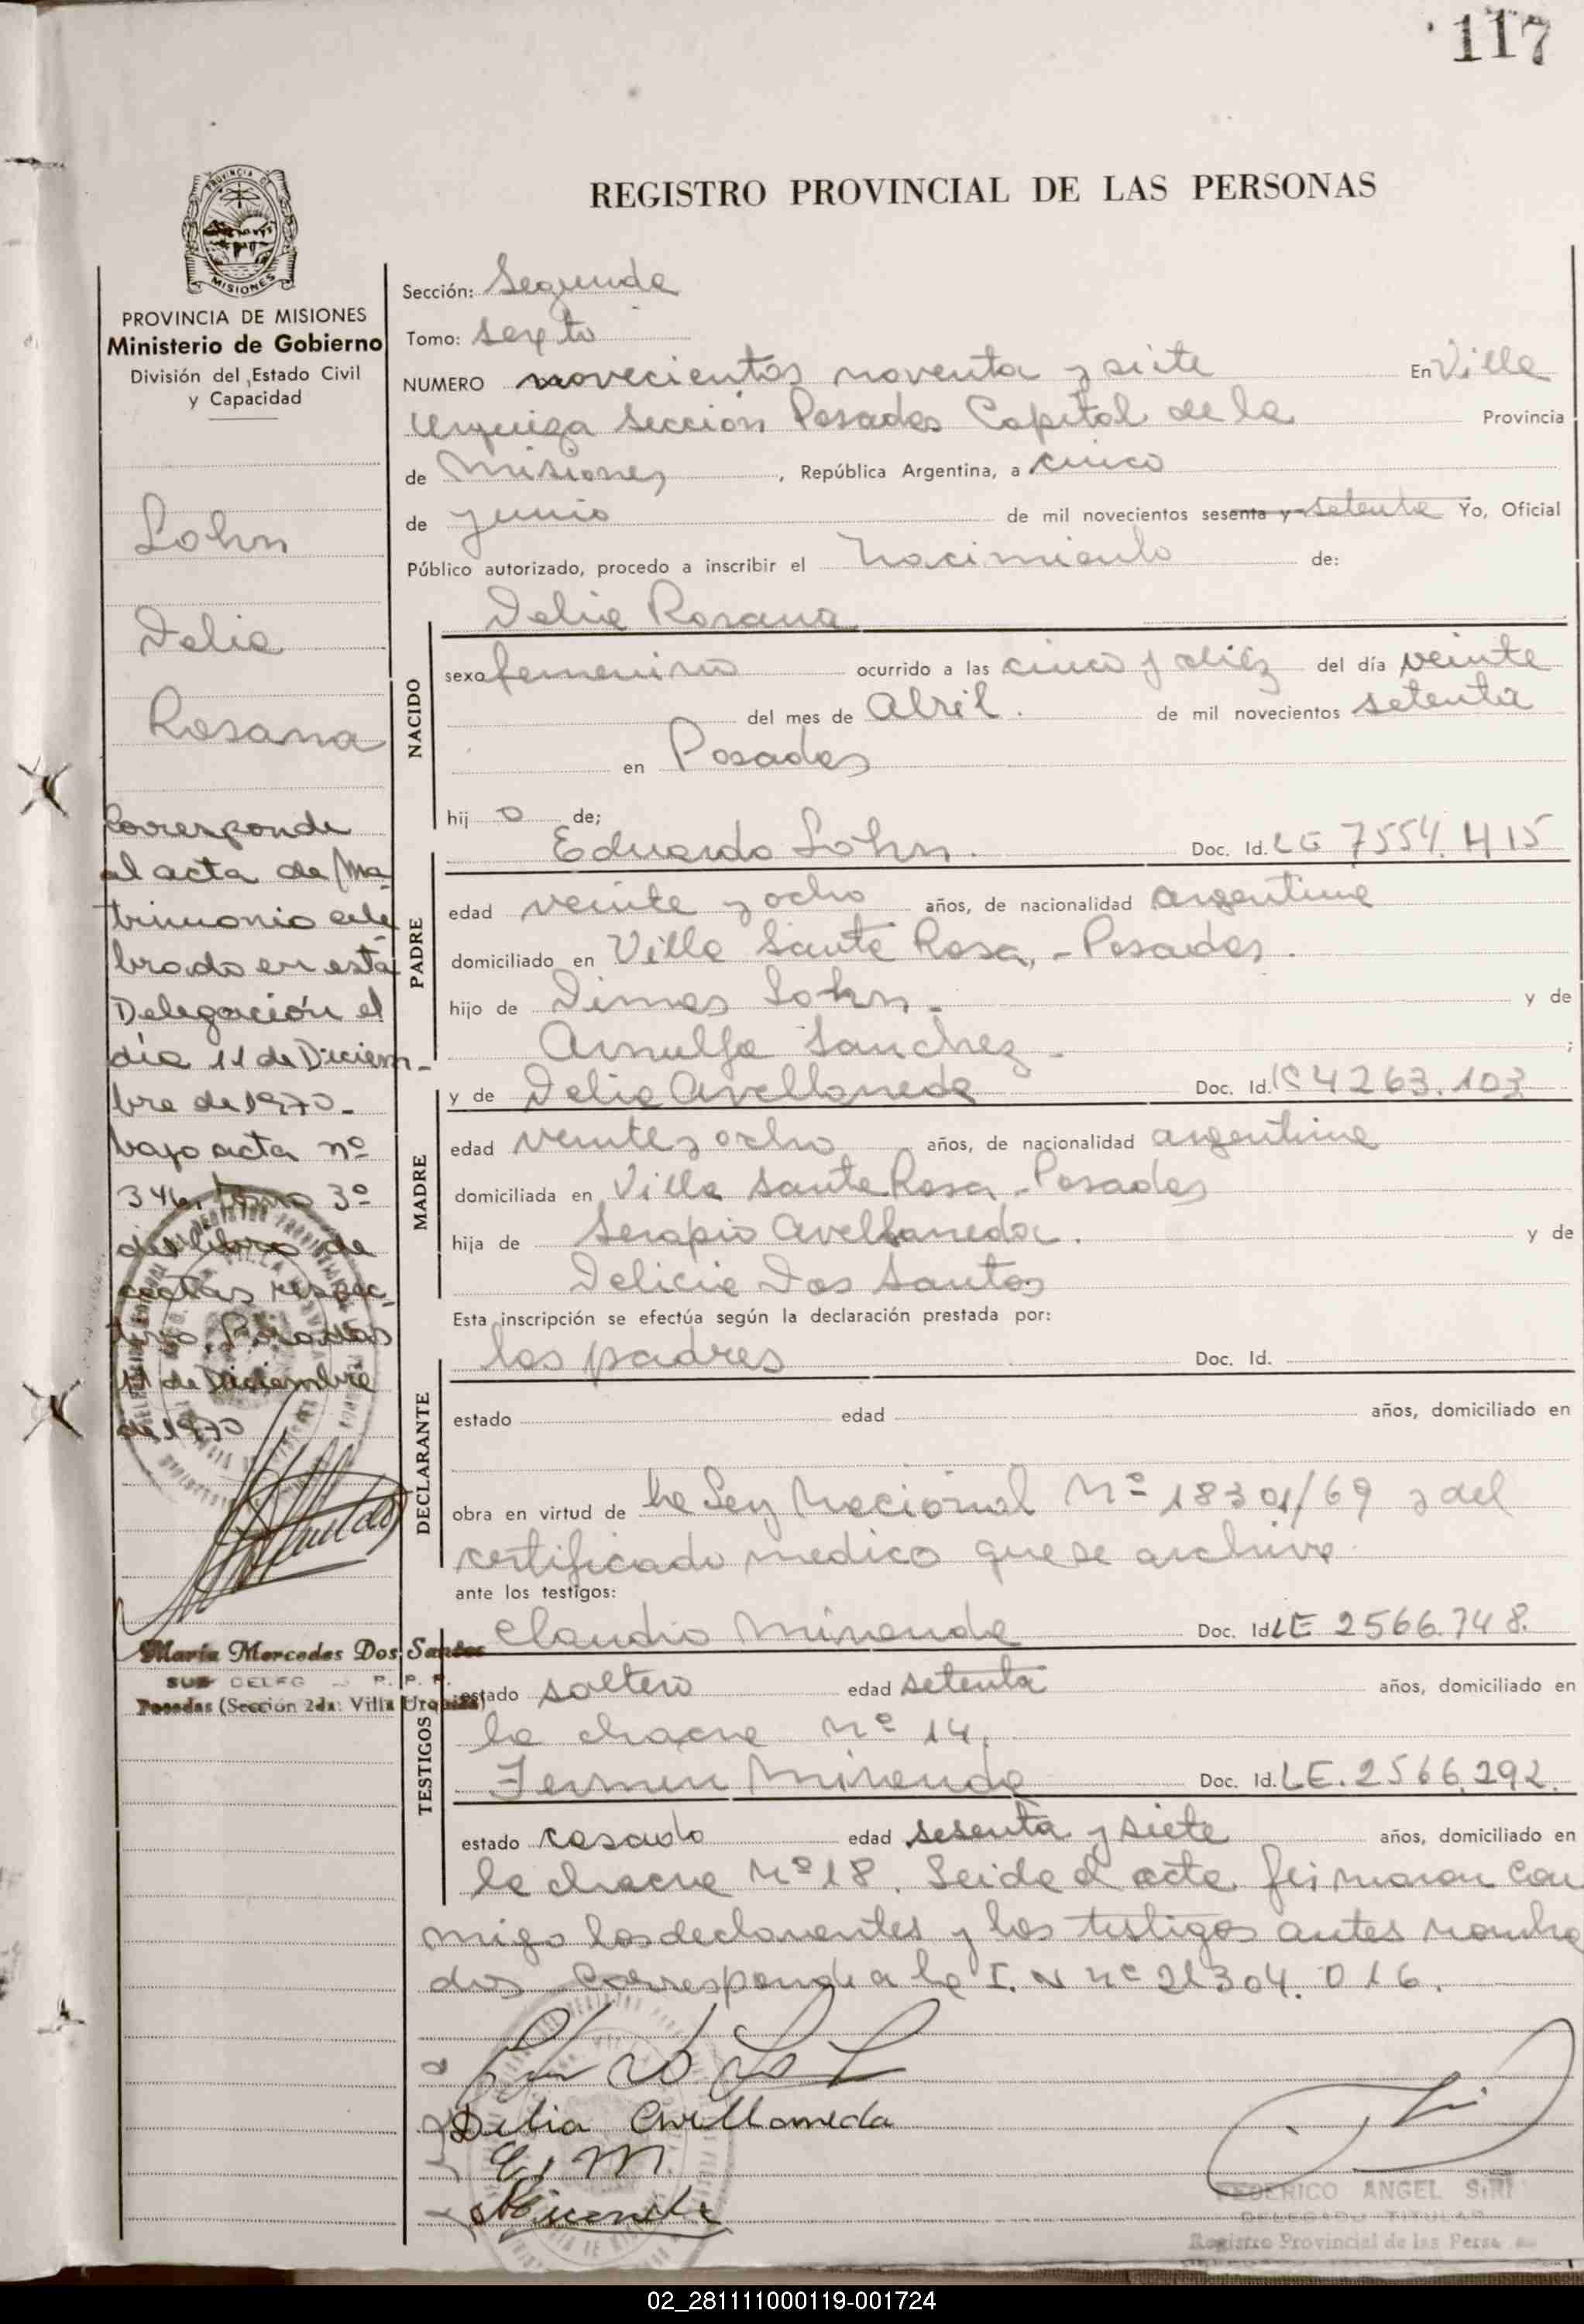 117
REGISTRO PROVINCIAL DE LAS PERSONAS
PROVINCIA DE
MISIONES
PROVINCIA DE MISIONES
Ministerio de Gobierno
División del Estado Civil
y Capacidad
Lohn
Delia
Rosana
Corresponde
al acta de Ma
trimonio cele
brado en esta
Delegación el
día 11 de Diciem-
bre de 1970-
bajo acta nº
346, tomo 3º
del libro de
actas respec-
tivo. Posadas
11 de Diciembre
de 1970
María Mercedes Dos Santos
SUB DELEG R. P. P.
Posadas (Sección 2da: Villa Urquiza)
Sección: Segunda
Tomo: sexto
NUMERO novecientos noventa y siete En Villa
Urquiza sección Posadas Capital de la Provincia
de Misiones, República Argentina, a cinco
de junio de mil novecientos sesenta y setenta Yo, Oficial
Público autorizado, procedo a inscribir el nacimiento de:
Delia Rosana
NACIDO
sexo femenino ocurrido a las cinco y diéz del día veinte
del mes de Abril. de mil novecientos setenta
en Posadas
hij a de;
Eduardo Lohn. Doc. Id. LE 7554.415
PADRE
edad veinte y ocho años, de nacionalidad argentina
domiciliado en Villa Santa Rosa, - Posadas.
hijo de Dimas Lohn. y de
Arnulfa Sanchez - ;
y de Delia Avellaneda Doc. Id. LC 4263.103
MADRE
edad veinte y ocho años, de nacionalidad argentina
domiciliada en Villa Santa Rosa - Posadas
hija de Serapio Avellaneda. y de
Delicia Dos Santos
Esta inscripción se efectúa según la declaración prestada por:
los padres Doc. Id.
DECLARANTE
estado edad años, domiciliado en
obra en virtud de la Ley Nacional Nº 18301/69 y del
certificado medico que se archiva
ante los testigos:
Claudio Miranda Doc. Id. LE 2566.748.
TESTIGOS
estado soltero edad setenta años, domiciliado en
la chacra nº 14.
Fermin Miranda Doc. Id. LE. 2566.292.
estado casado edad sesenta y siete años, domiciliado en
la chacra nº 18. Leida el acta firmaron con
migo los declarantes y los testigos antes nombra
dos Corresponde a la I. N nº 21304.016.
Delia Avellaneda
Miranda
FEDERICO ANGEL SIRI
DELEGADO TITULAR
Registro Provincial de las Perso
02_281111000119-001724